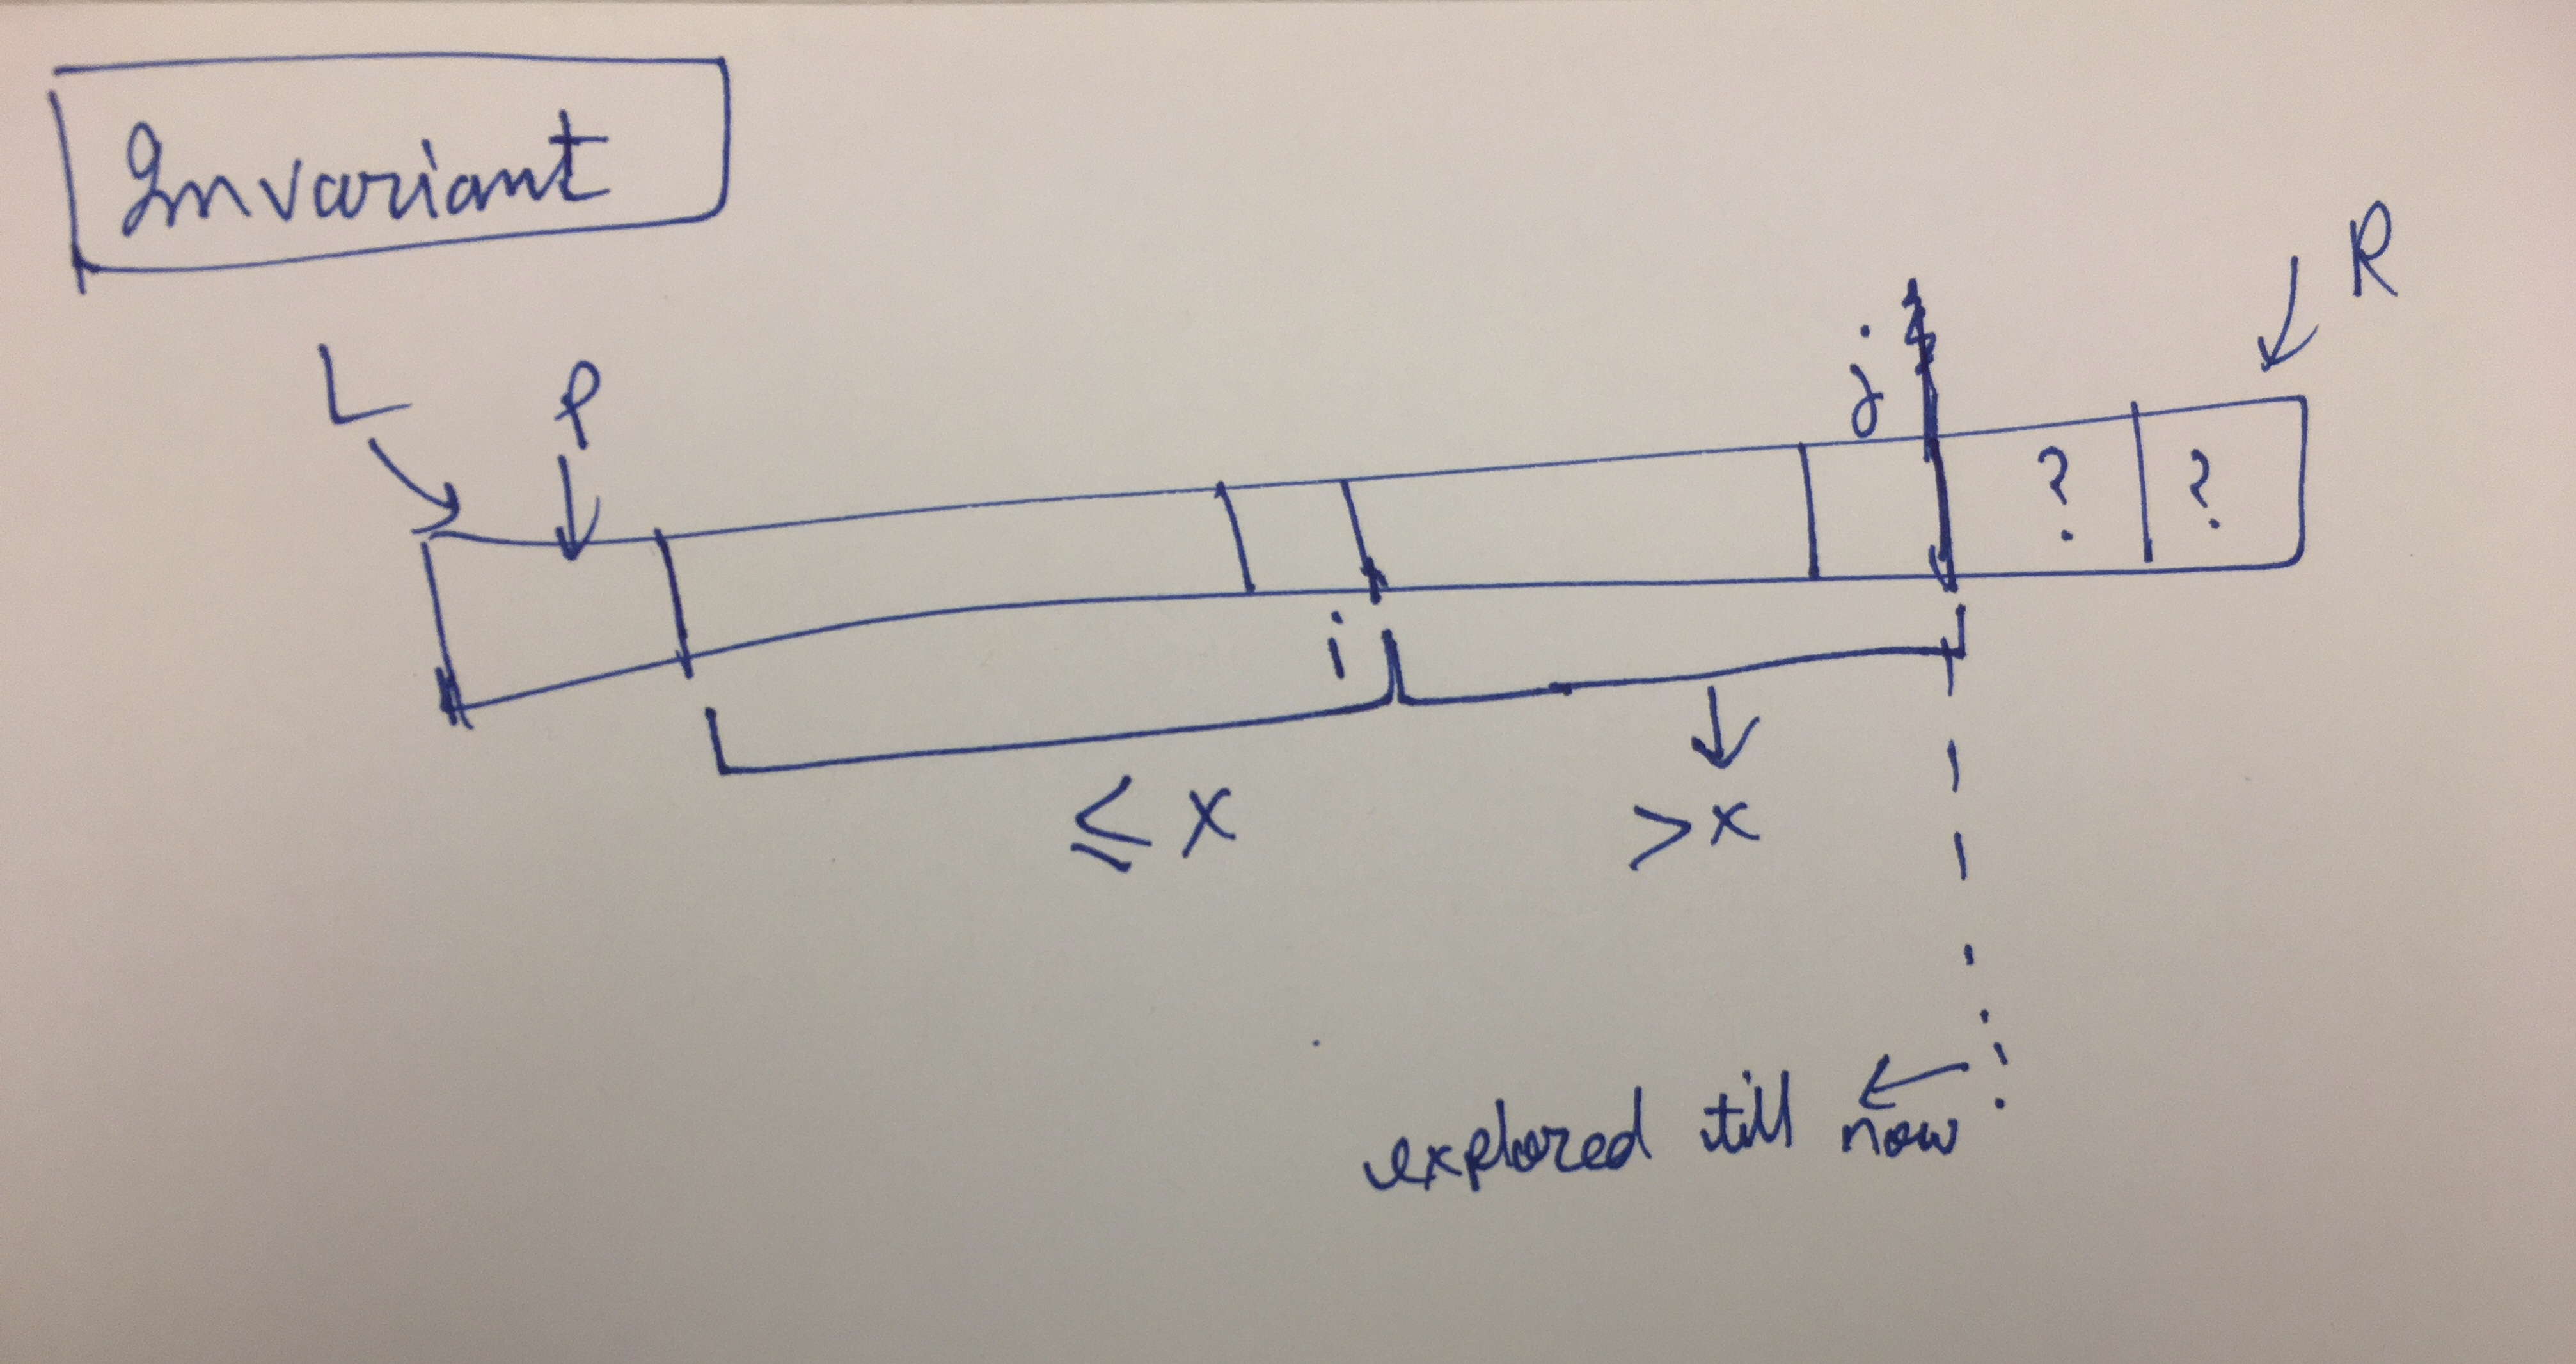 Invariant
L
P
j
R
?
?
i
≤ x
> x
explored till now